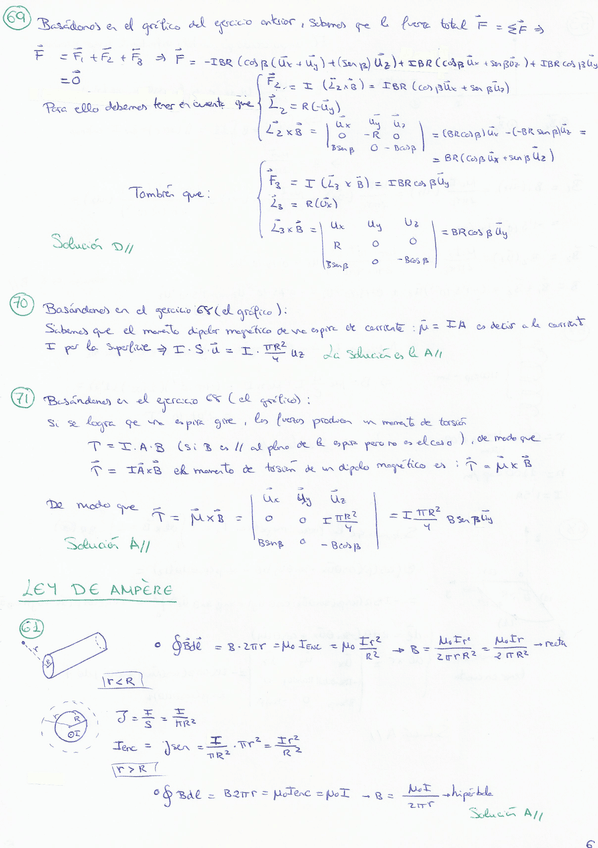 69 Basándonos en el gráfico del ejercicio anterior, sabemos que la fuerza total F⃗ = ΣF⃗ ⇒
F⃗ = F⃗₁ + F⃗₂ + F⃗₃ ⇒ F⃗ = -IBR (cosβ(u⃗x + u⃗y) + (senβ) u⃗z) + IBR (cosβ u⃗x + senβ u⃗z) + IBR cosβ u⃗y
= 0⃗
Para ello debemos tener en cuenta que
F⃗₂ = I (L⃗₂ x B⃗) = IBR (cosβ u⃗x + senβ u⃗z)
L⃗₂ = R(-u⃗y)
L⃗₂ x B⃗ = | u⃗x u⃗y u⃗z | = (BR cosβ) u⃗x - (-BR senβ) u⃗z =
| 0 -R 0 |
| Bsenβ 0 -Bcosβ | = BR (cosβ u⃗x + senβ u⃗z)
También que:
F⃗₃ = I (L⃗₃ x B⃗) = IBR cosβ u⃗y
L⃗₃ = R(u⃗x)
L⃗₃ x B⃗ = | ux uy uz | = BR cosβ u⃗y
| R 0 0 |
| Bsenβ 0 -Bcosβ |
Solución D//
70 Basándonos en el ejercicio 68 (el gráfico):
Sabemos que el momento dipolar magnético de una espira de corriente: μ⃗ = IA es decir a la corrient
I por la superficie ⇒ I · S · u⃗ = I · πR²/4 uz La solución es la A//
71 Basándonos en el ejercicio 68 (el gráfico):
Si se logra que una espira gire, las fuerzas producen un momento de torsión
T = I · A · B (si B es // al plano de la espira pero no es el caso), de modo que
T⃗ = IA⃗xB⃗ el momento de torsión de un dipolo magnético es: T⃗ = μ⃗ x B⃗
De modo que T⃗ = μ⃗ x B⃗ = | u⃗x u⃗y u⃗z | = I πR²/4 B senβ u⃗y
| 0 0 I πR²/4 |
| Bsenβ 0 -Bcosβ |
Solución A//
LEY DE AMPÈRE
61
∮B⃗dl⃗ = B · 2πr = μ₀ Ienc = μ₀ Ir²/R² → B = μ₀Ir²/2πrR² = μ₀Ir/2πR² → recta
r<R
J = I/S = I/πR²
Ienc = Jsen = I/πR² · πr² = Ir²/R²
r>R
∮Bdl = B2πr = μ₀Ienc = μ₀I → B = μ₀I/2πr → hipérbola
Solución A//
6